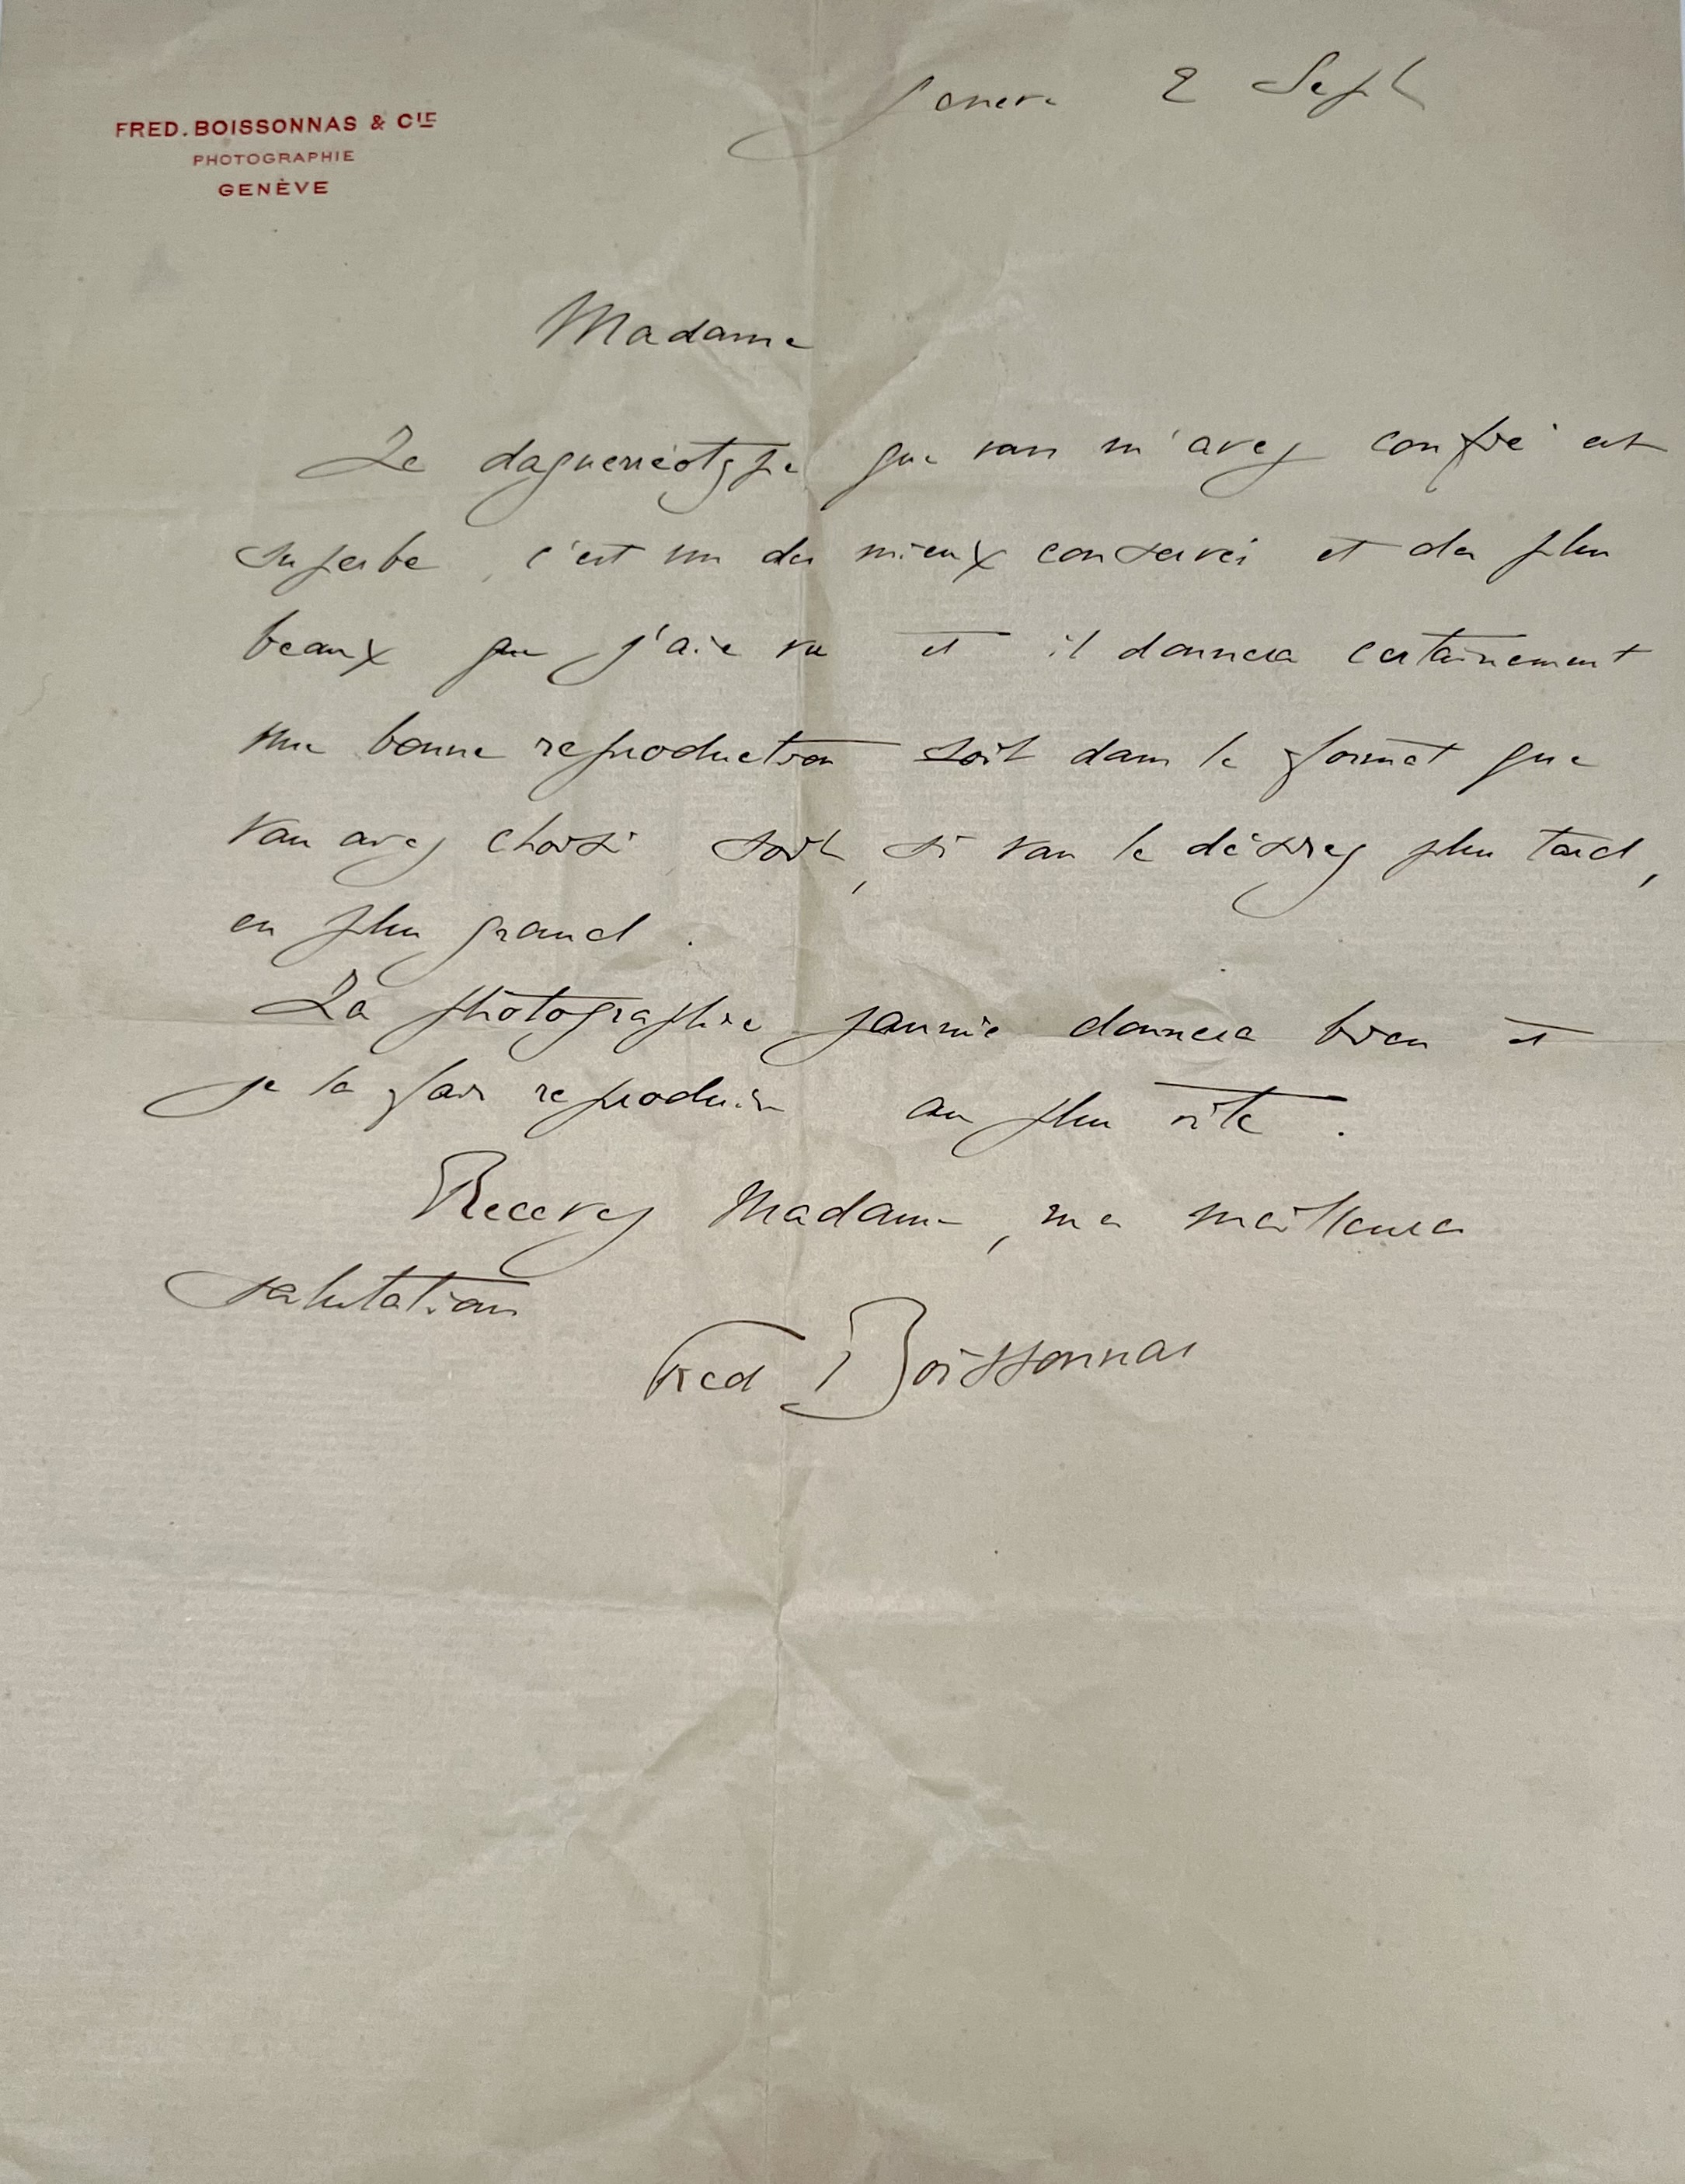 FRED. BOISSONNAS & CIE
PHOTOGRAPHIE
GENÈVE
Genève 2 Sept
Madame
Le daguerréotype que vous m'avez confié est
superbe, c'est un des mieux conservés et des plus
beaux que j'aie vu et il donnera certainement
une bonne reproduction soit dans le format que
vous avez choisi soit, si vous le désirez plus tard,
en plus grand.
La photographie jaunie donnera bien et
je la fais reproduire au plus vite.
Recevez Madame, mes meilleures
salutations
Fred Boissonnas